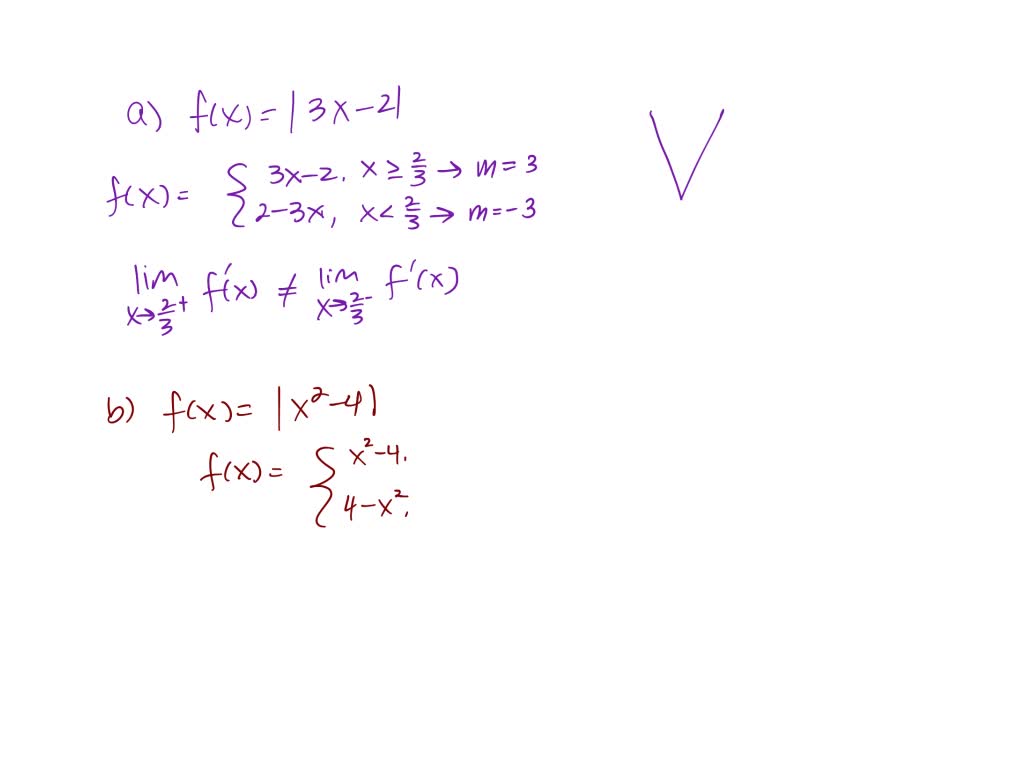 a) f(x) = |3x-2|
f(x) = { 3x-2. x ≥ 2/3 → m = 3
2-3x, x < 2/3 → m = -3
lim x→2/3+ f'(x) ≠ lim x→2/3- f'(x)
b) f(x) = |x²-4|
f(x) = { x²-4.
4-x².